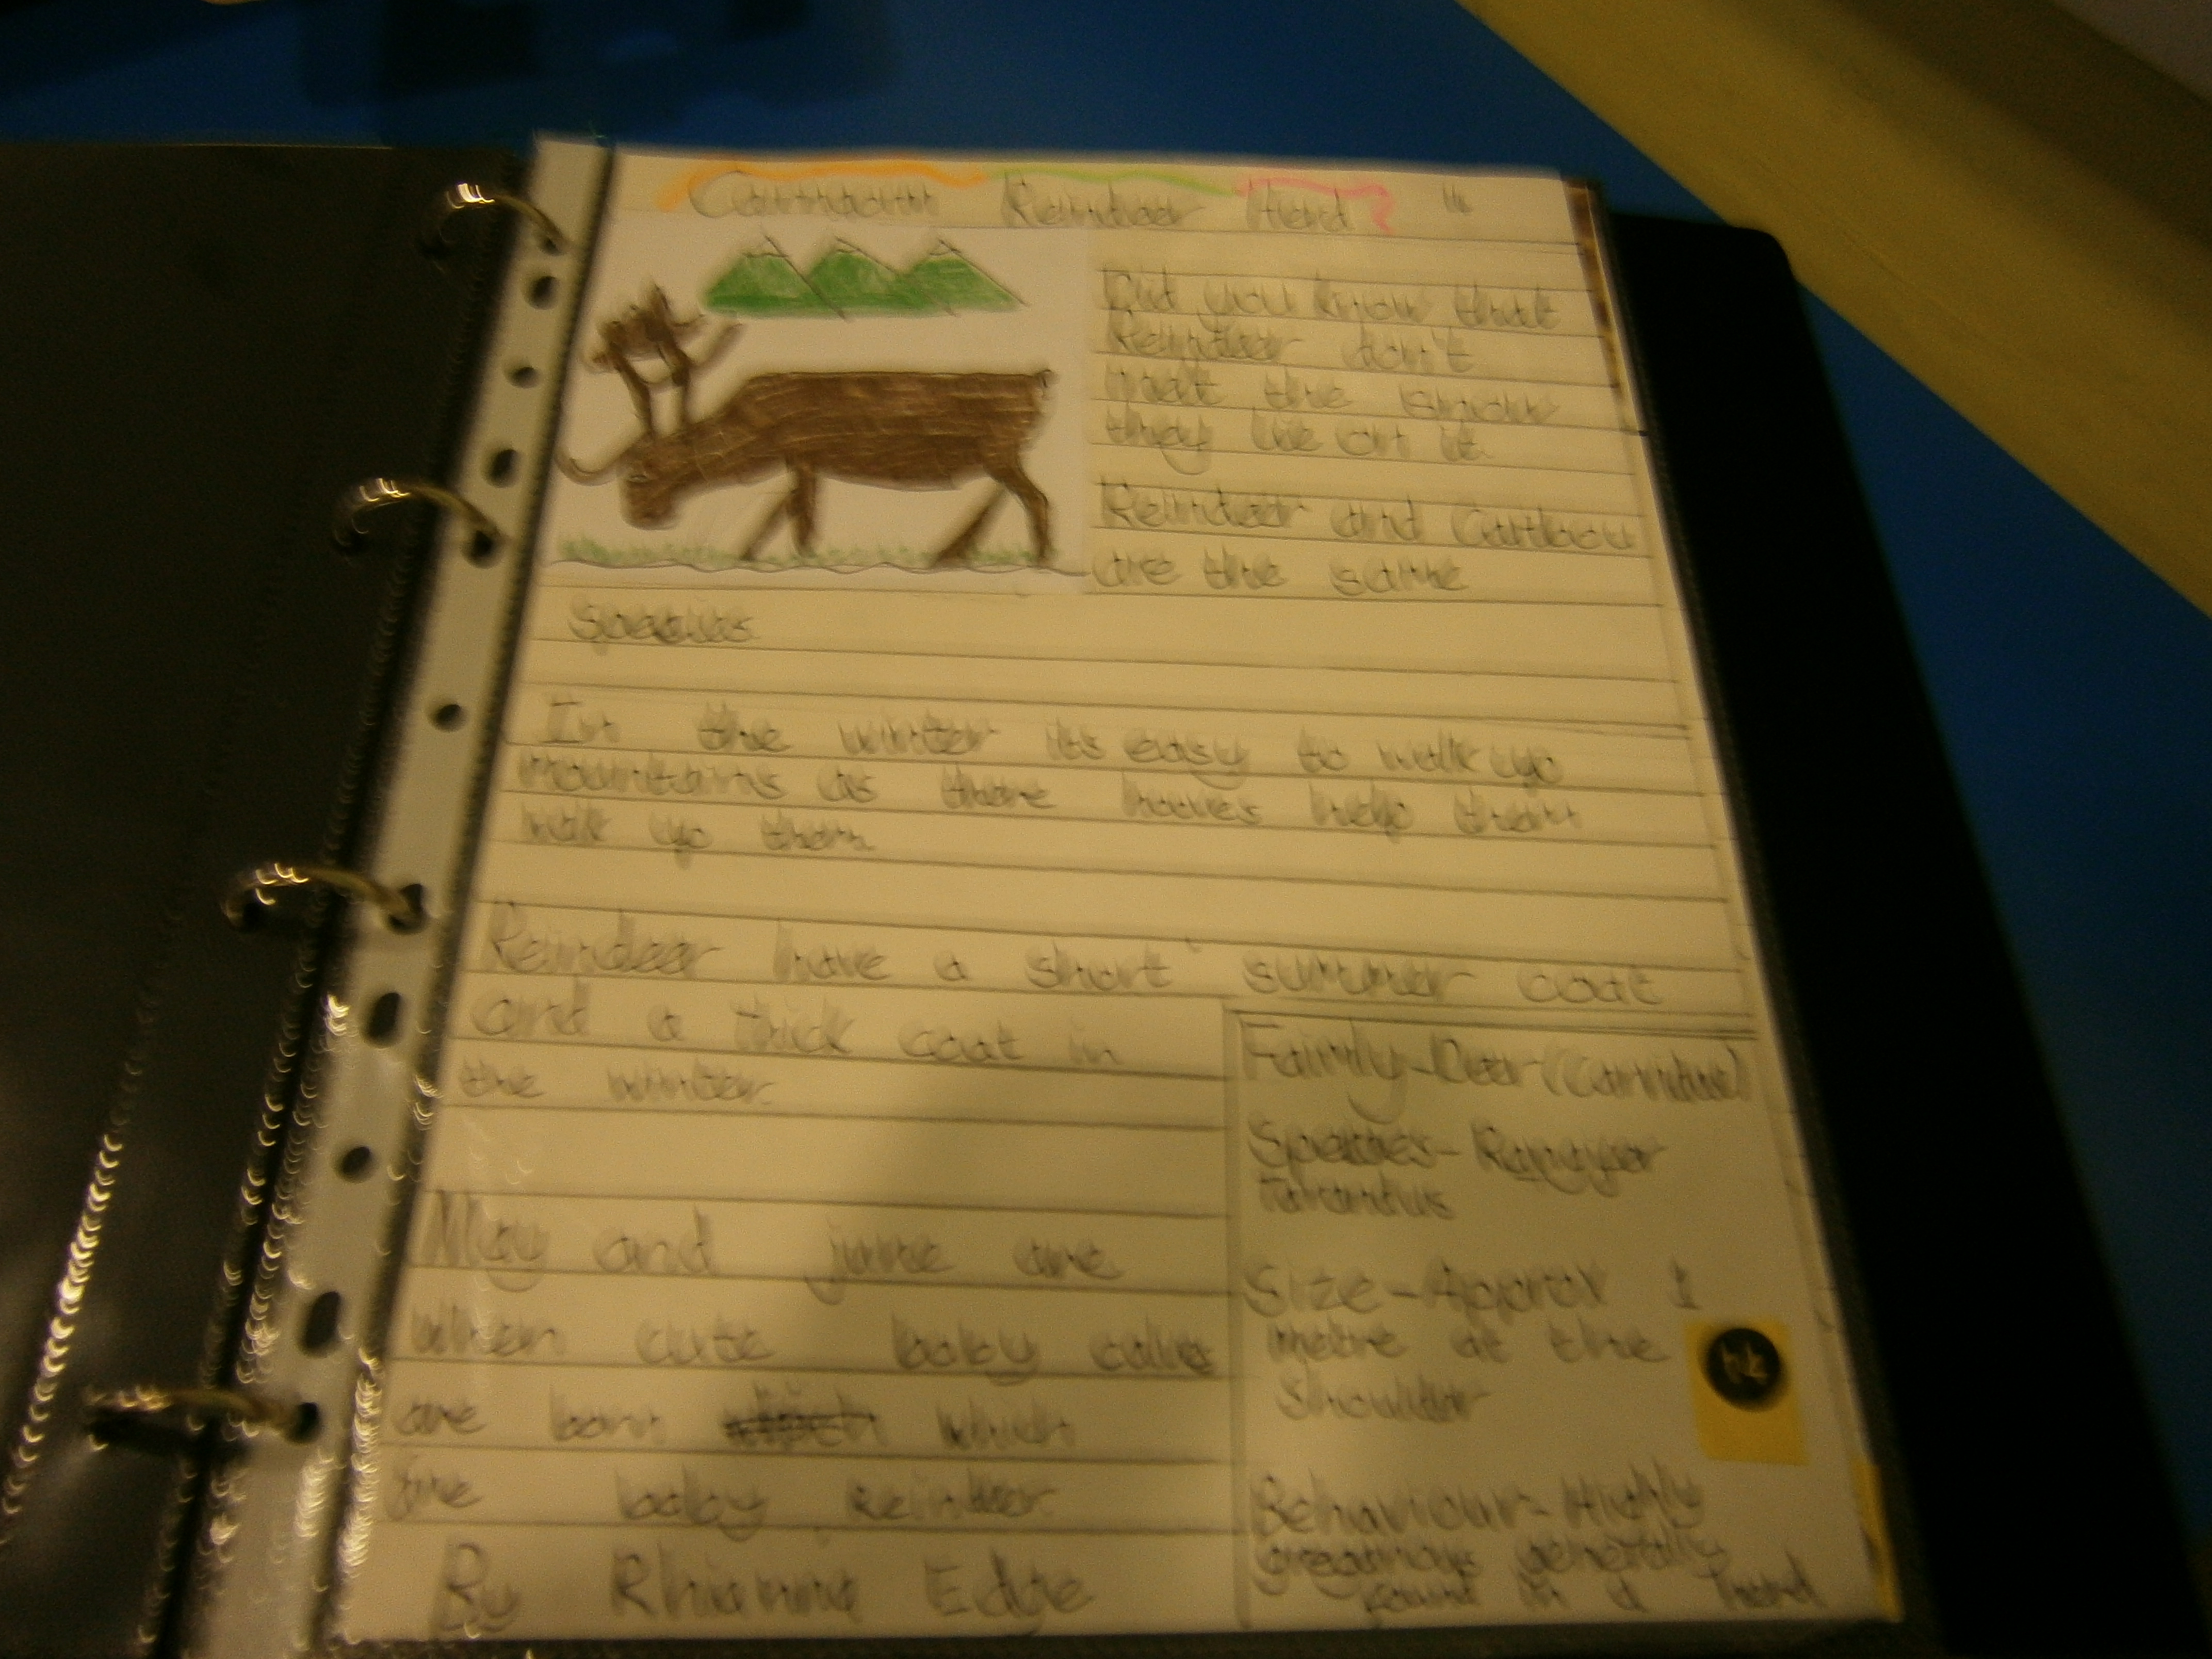 Cairngorm Reindeer Herd
Did you know that
Reindeer don't
melt the snow
they lie on it
Reindeer and Caribou
are the same
Species
In the winter its easy to walk up
mountains as there hooves help them
walk up them
Reindeer have a short summer coat
and a thick coat in
the winter.
May and june are
when cute baby calves
are born which
are baby Reindeer.
By Rhianna Edge
Family-Deer (Cervidae)
Species- Rangyer
tarandus
Size-Approx 1
metre at the
shoulder
Behaviour- Highly
gregarious generally
found in a herd